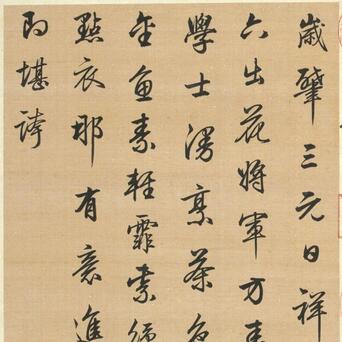 歲肇三元日祥
六出花將軍方
學士漫烹茶
魚素輕霏縈
點衣那有意進
句堪誇